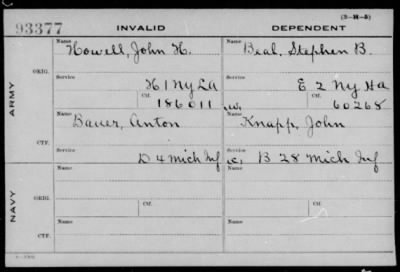 (3-H-5)
93377 INVALID DEPENDENT
Name Name
Howell, John H. Beal, Stephen B.
ARMY
ORIG.
Service Service
H 1 Ny LA E 2 Ny Ha
Ctf. Ctf.
186011 W. 60268
Name Name
Bauer, Anton Knapp, John
CTF.
Service Service
D 4 Mich Inf W. B 28 Mich Inf
Name Name
NAVY
ORIG.
Service Ctf. Service Ctf.
Name Name
CTF.
Service Service